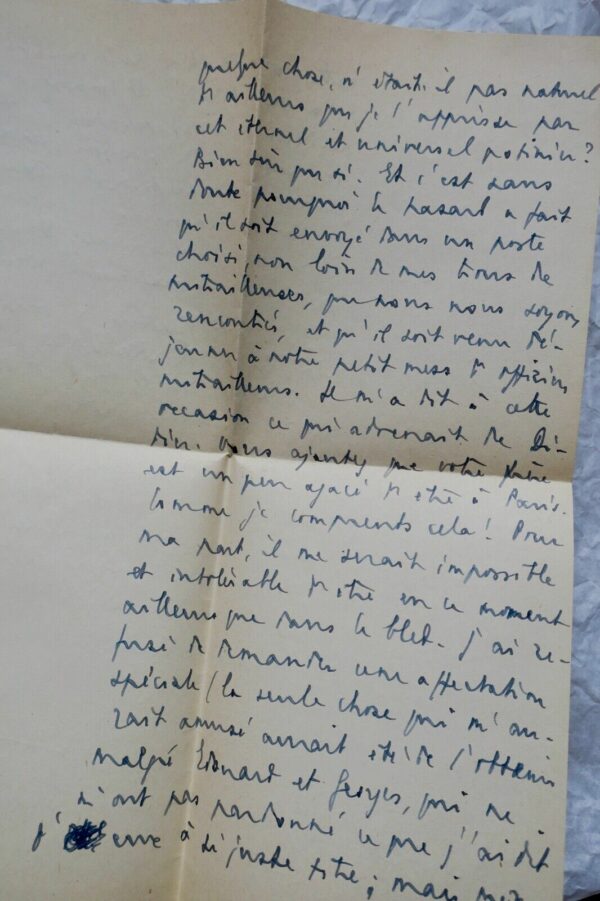 quelque chose, n'était-il pas naturel
d'ailleurs que je l'apprisse par
cet éternel et universel potinier ?
Bien sûr que si. Et c'est sans
doute pourquoi le hasard a fait
qu'il soit envoyé dans un poste
choisi, non loin de mes trous de
mitrailleuses, que nous nous soyons
rencontrés, et qu'il soit venu dé-
jeuner à notre petit mess d'officiers
mitrailleurs. Il m'a dit à cette
occasion ce qui advenait de Di-
din. Vous ajoutez que votre frère
est un peu agacé d'être à Paris.
Comme je comprends cela ! Pour
ma part, il me serait impossible
et intolérable d'être en ce moment
ailleurs que dans le bled. J'ai re-
fusé de demander une affectation
spéciale (la seule chose qui m'au-
rait amusé aurait été de l'obtenir
malgré Edouard et Georges, qui ne
m'ont pas pardonné ce que j'ai dit
d' eux à si juste titre ; mais